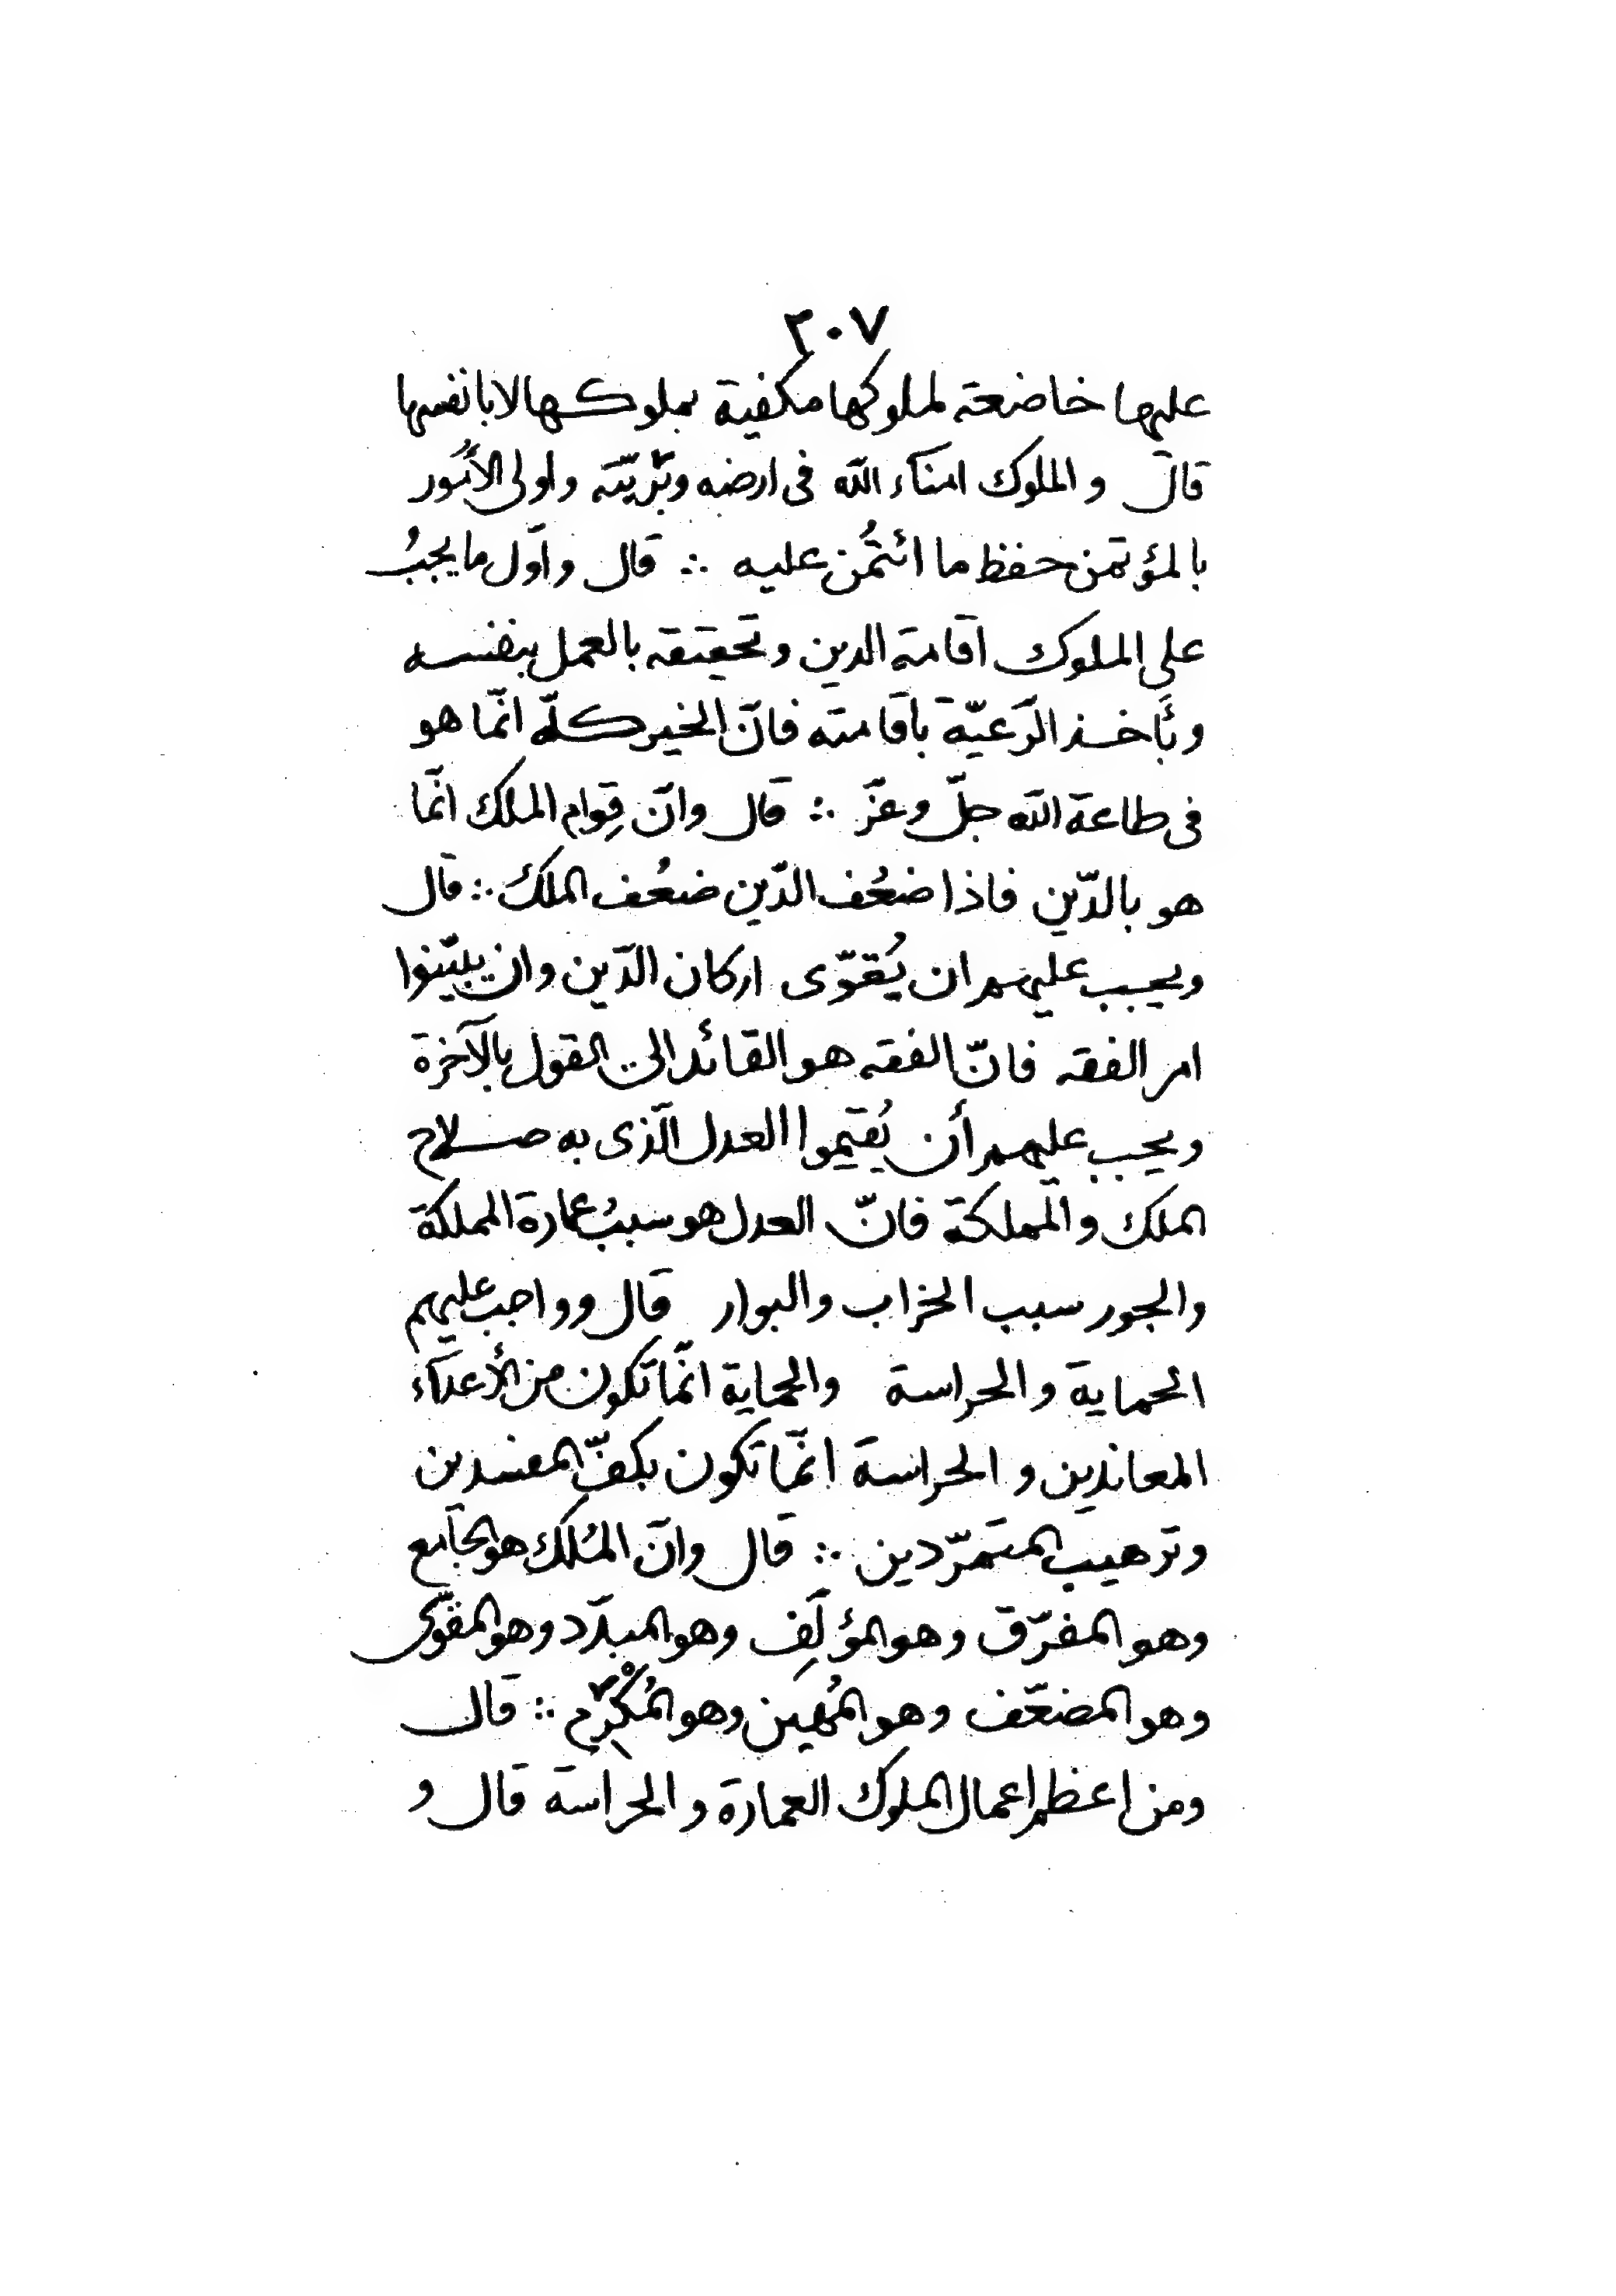 ٢٠٧
عليها خاضعة لملوكها مكفية بملوكها لا بانفسها
قال والملوك امنآء الله فى ارضه وبَرّيّته واولى الأمُور
بالمؤتمن حفظ ما ائتُمن عليه ∴ قال واوّل ما يجبُ
على الملوك اقامة الدين وتحقيقه بالعمل بنفسه
وبأخذ الرّعيّة باقامته فانّ الخير كلّه انّما هو
فى طاعة الله جلّ وعزّ ∴ قال وانّ قِوام الملك انّما
هو بالدّين فاذا ضعُف الدّين ضعُف الملك ∴ قال
ويجب عليهم ان يُقوّى اركان الدّين وان يبيّنوا
امر الفقه فانّ الفقه هو القائد الى القول بالآخرة
ويجب عليهم أن يُقيموا العدل الّذى به صلاح
الملك والمملكة فانّ العدل هو سببُ عمارة المملكة
والجور سبب الخراب والبوار قال وواجب عليهم
الحماية والحراسة والحماية انّما تكون من الأعدآء
المعاندين والحراسة انّما تكون بكفّ المفسدين
وترهيب المتمرّدين ∴ قال وانّ المُلك هو الجامع
وهو المفرّق وهو المؤلِّف وهو المبدّد وهو المقوّى
وهو المضعّف وهو المُهين وهو المُكْرِم ∴ قال
ومن اعظم اعمال الملوك العمارة والحراسة قال و